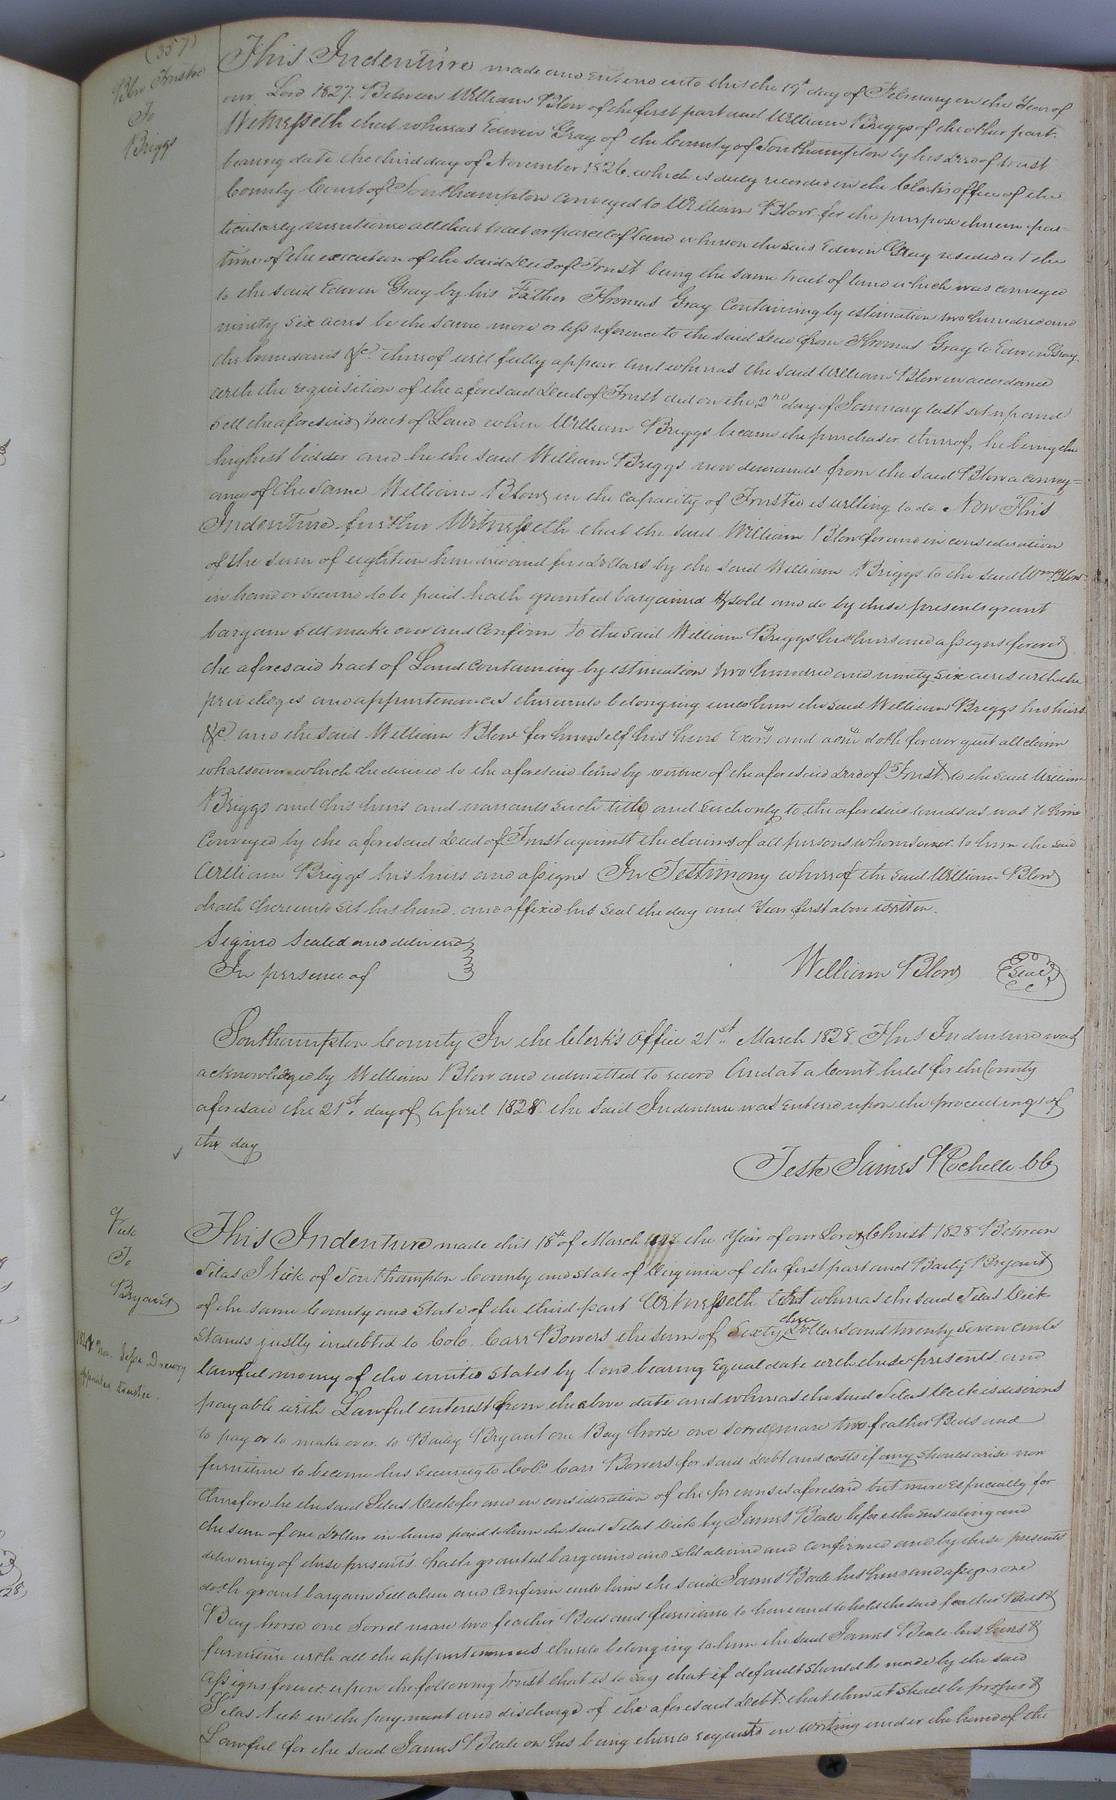 (357)
Blow Trustee
To
Briggs
This Indenture made and entered into this the 19th day of February in the Year of
our Lord 1827. Between William Blow of the first part and William Briggs of the other part.
Witnesseth that whereas Edwin Gray of the County of Southampton by his deed of trust
bearing date the third day of November 1826, which is duly recorded in the Clerk's office of the
County Court of Southampton conveyed to William Blow for the purpose therein par=
ticularly mentioned all that tract or parcel of land whereon the said Edwin Gray resided at the
time of the execution of the said deed of Trust being the same tract of land which was conveyed
to the said Edwin Gray by his Father Thomas Gray Containing by estimation two hundred and
ninety six acres be the same more or less reference to the said deed from Thomas Gray to Edwin Gray
the boundaries &c. thereof will fully appear and whereas the said William Blow in accordance
with the requisition of the aforesaid Deed of Trust did on the 2nd day of January last set up and
sell the aforesaid tract of Land when William Briggs became the purchaser thereof, he being the
highest bidder and he the said William Briggs now demands from the said Blow a convey=
ance of the same William Blow in the Capacity of Trustee is willing to do Now This
Indenture further Witnesseth that the said William Blow for and in consideration
of the sum of eighteen hundred and five Dollars by the said William Briggs to the said Wm. Blow
in hand or secured to be paid hath granted bargained & sold and do by these presents grant
bargain sell make over and confirm to the said William Briggs his heirs and assigns forever
the aforesaid tract of Land containing by estimation two hundred and ninety six acres with the
priveleges and appurtenances thereunto belonging unto him the said William Briggs his heirs
&c. and the said William Blow for himself his heirs Exors and adm doth forever quit all claim
whatsoever which he derived to the aforesaid land by virtue of the aforesaid deed of Trust. to the said William
Briggs and his heirs and warrants such title and such only to the aforesaid lands as was to him
Conveyed by the aforesaid deed of Trust against the claims of all persons whomsoever. to him the said
William Briggs his heirs and assigns In Testimony whereof the said William Blow
hath hereunto set his hand and affixed his seal the day and Year first above written.
Signed Sealed and delivered
In presence of
William Blow Seal
Southampton County In the Clerk's Office 21st March 1828 This Indenture was
acknowledged by William Blow and admitted to record And at a Court held for the County
aforesaid the 21st day of April 1828 the said Indenture was entered upon the proceedings of
the day
Teste James Rochelle CC
Vick
To
Bryant
This Indenture made this 18th of March 1828 the Year of our Lord Christ 1828 Between
Silas Vick of Southampton County and state of Virginia of the first part and Baily Bryant
of the same County and State of the third part Witnesseth that whereas the said Silas Vick
Stands justly indebted to Colo. Carr Bowers the sum of Sixty three Dollars and twenty seven cents
lawful money of the united States by bond bearing Equal date with these presents and
payable with Lawful interest from the above date and whereas the said Silas Vick is desirous
to pay or to make over to Bailey Bryant one Bay horse one sorrel mare two feather Beds and
furniture to become his security to Colo. Carr Bowers for said debt and costs if any should arise now
therefore he the said Silas Vick for and in consideration of the premises aforesaid but more especially for
the sum of one Dollar in hand paid to him the said Silas Vick by James Beale before the ensealing and
delivering of these presents. hath granted bargained and sold aliened and confirmed and by these presents
doth grant bargain sell alien and confirm unto him the said James Beale his heirs and assigns one
Bay horse one Sorrel mare two feather Beds and furniture to have and to hold the said feather Beds &
furniture with all the appurtenances thereto belonging to him the said James Beale his heirs &
Assigns forever upon the following trust that is to say that if default should be made by the said
Silas Vick in the payment and discharge of the aforesaid debt. that then it shall be proper &
Lawful for the said James Beale on his being thereto required in writing under the hand of the